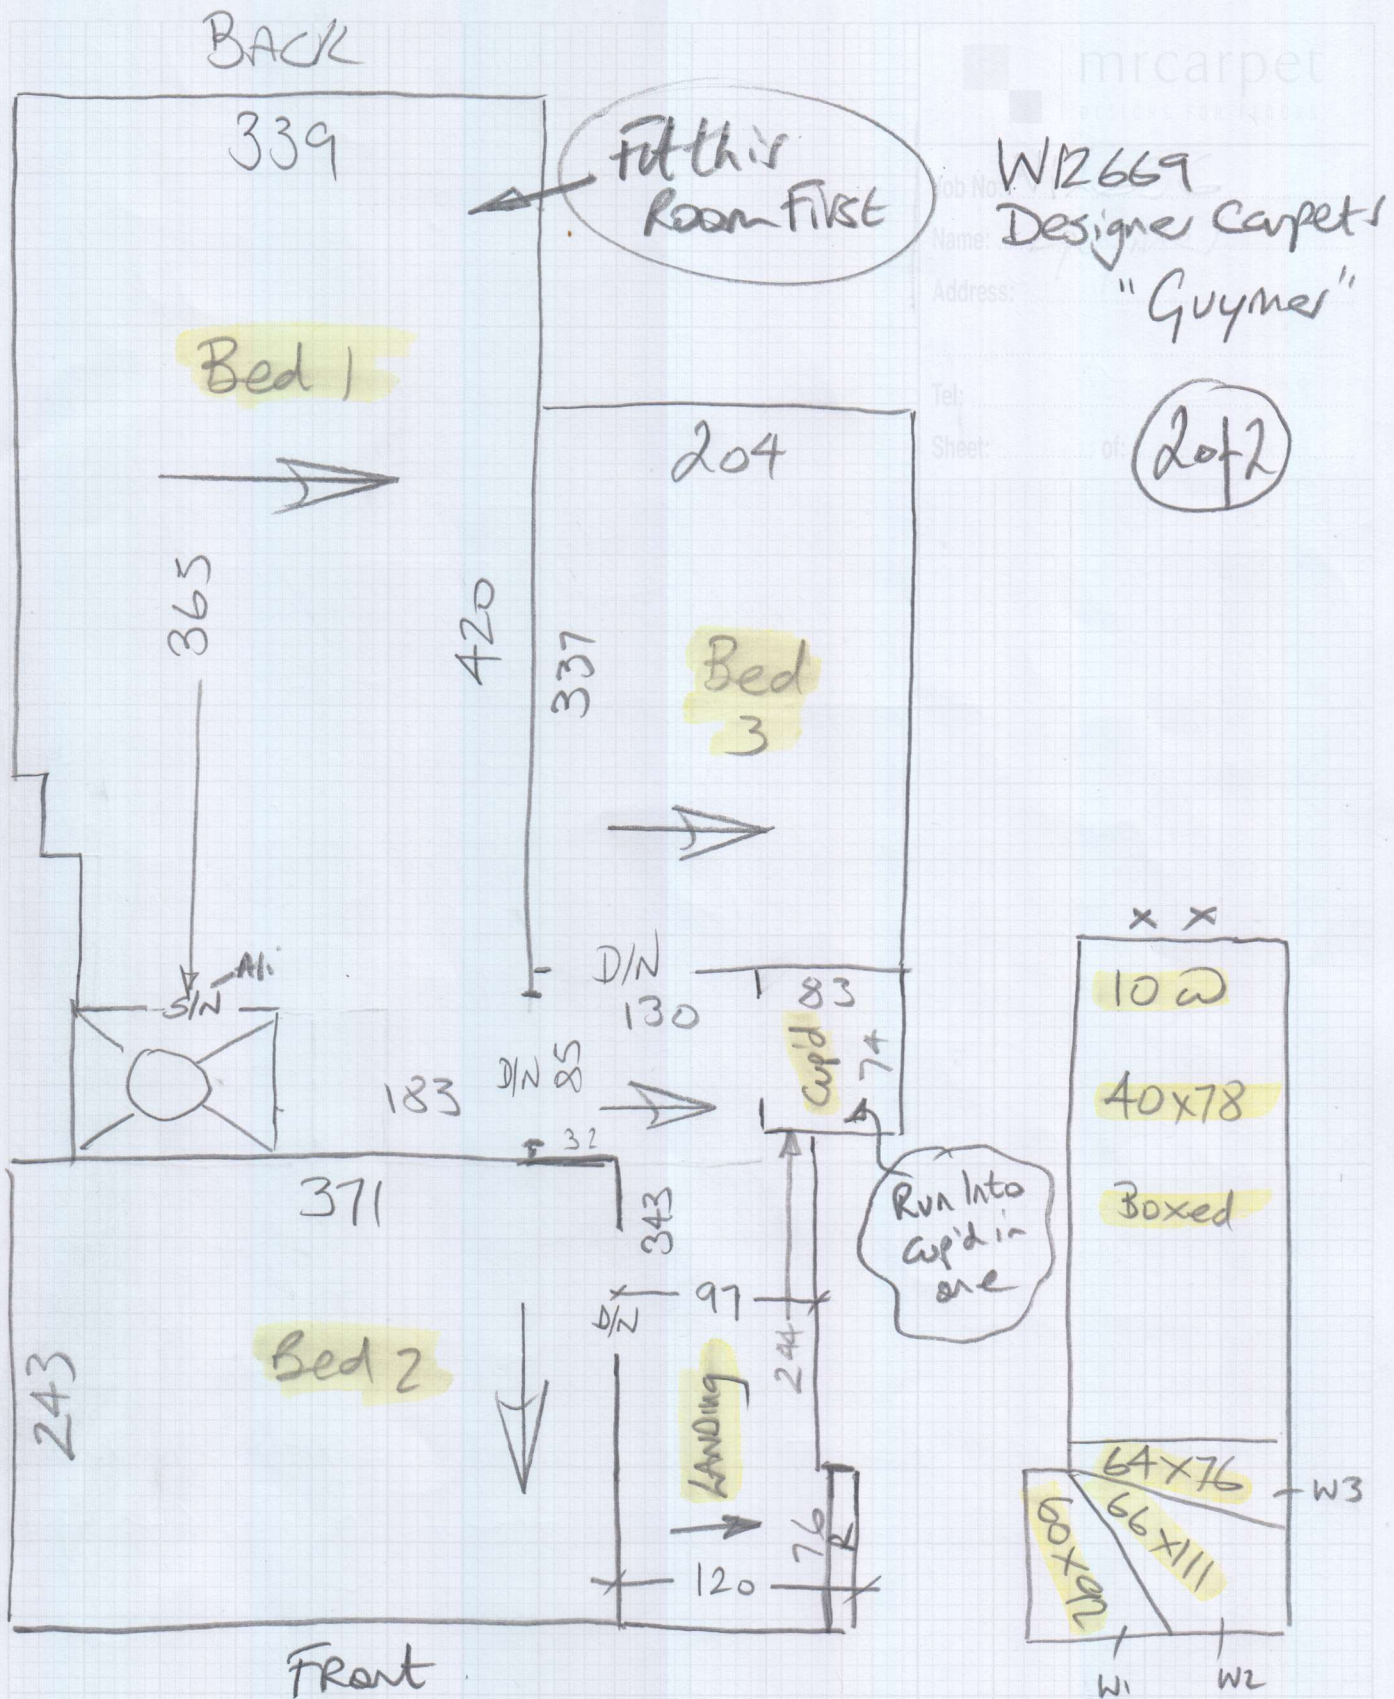 BACK
mrcarpet
339
Fit this
Room First
Job No:
W12669
Name:
Designer Carpets
Address:
"Guymer"
Bed 1
Tel:
Sheet: of:
2 of 2
204
365
420
337
Bed
3
Ali
S/N
D/N
130
83
Cup'd
74
183
D/N
85
32
371
343
Run Into
Cup'd in
one
D/N
97
244
243
Bed 2
LANDing
76
R
120
Front
x x
10 W
40x78
Boxed
64x76
W3
66x111
60x92
W1
W2